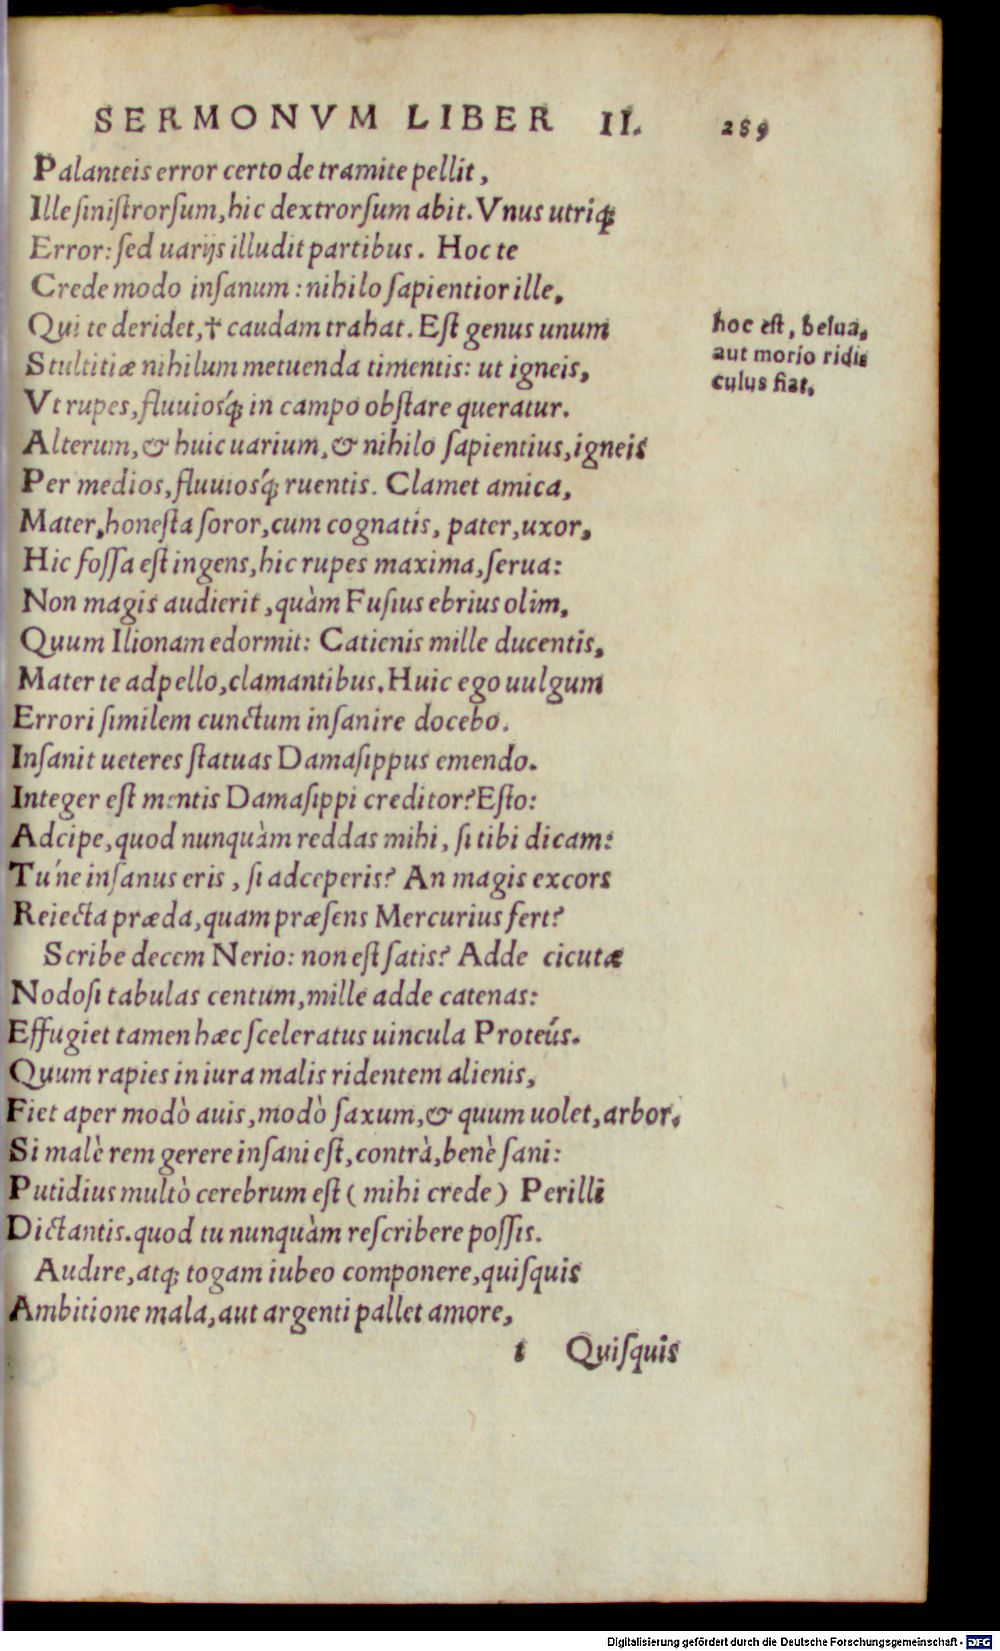 SERMONVM LIBER II. 289
Palanteis error certo de tramite pellit,
Ille ſiniſtrorſum, hic dextrorſum abit. Vnus utriq;
Error: ſed uarijs illudit partibus. Hoc te
Crede modo inſanum: nihilo ſapientior ille,
Qui te deridet, † caudam trahat. Eſt genus unum
Stultitiæ nihilum metuenda timentis: ut igneis,
Vt rupes, fluuiosq́; in campo obſtare queratur.
Alterum, & huic uarium, & nihilo ſapientius, igneis
Per medios, fluuiosq́; ruentis. Clamet amica,
Mater, honeſta ſoror, cum cognatis, pater, uxor,
Hic foſſa eſt ingens, hic rupes maxima, ſerua:
Non magis audierit, quàm Fuſius ebrius olim,
Quum Ilionam edormit: Catienis mille ducentis,
Mater te adpello, clamantibus. Huic ego uulgum
Errori ſimilem cunctum inſanire docebo.
Inſanit ueteres ſtatuas Damaſippus emendo.
Integer eſt mentis Damaſippi creditor? Eſto:
Adcipe, quod nunquàm reddas mihi, ſi tibi dicam:
Tu'ne inſanus eris, ſi adceperis? An magis excors
Reiecta præda, quam præſens Mercurius fert?
Scribe decem Nerio: non eſt ſatis? Adde cicutæ
Nodoſi tabulas centum, mille adde catenas:
Effugiet tamen hæc ſceleratus uincula Proteús.
Quum rapies in iura malis ridentem alienis,
Fiet aper modò auis, modò ſaxum, & quum uolet, arbor.
Si malè rem gerere inſani eſt, contrà, benè ſani:
Putidius multò cerebrum eſt (mihi crede) Perilli
Dictantis. quod tu nunquàm reſcribere poſſis.
Audire, atq; togam iubeo componere, quiſquis
Ambitione mala, aut argenti pallet amore,
t Quiſquis
hoc eſt, belua,
aut morio ridi-
culus fiat.
Digitalisierung gefördert durch die Deutsche Forschungsgemeinschaft - DFG